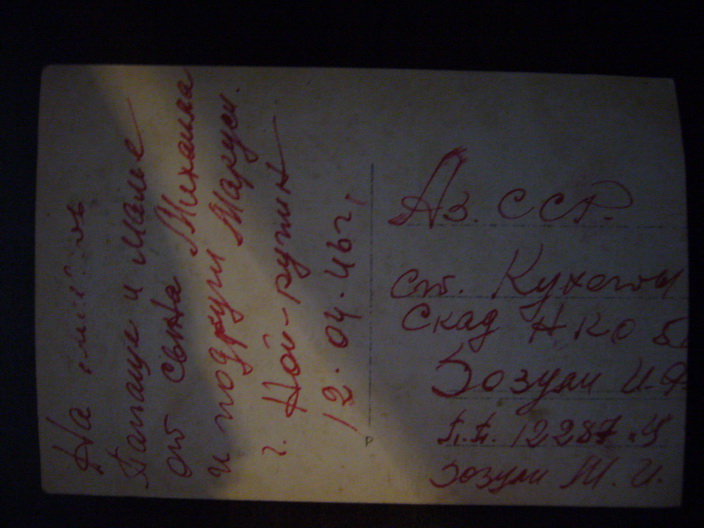 На память
Папаше и маме
от сына Михаила
и подруги Маруси.
г. Ной-рупин
12.04.46 г.
Аз. ССР.
ст. Кухоты
Склад НКО
Зозули И.Ф
П.П. 12287
Зозули М. И.